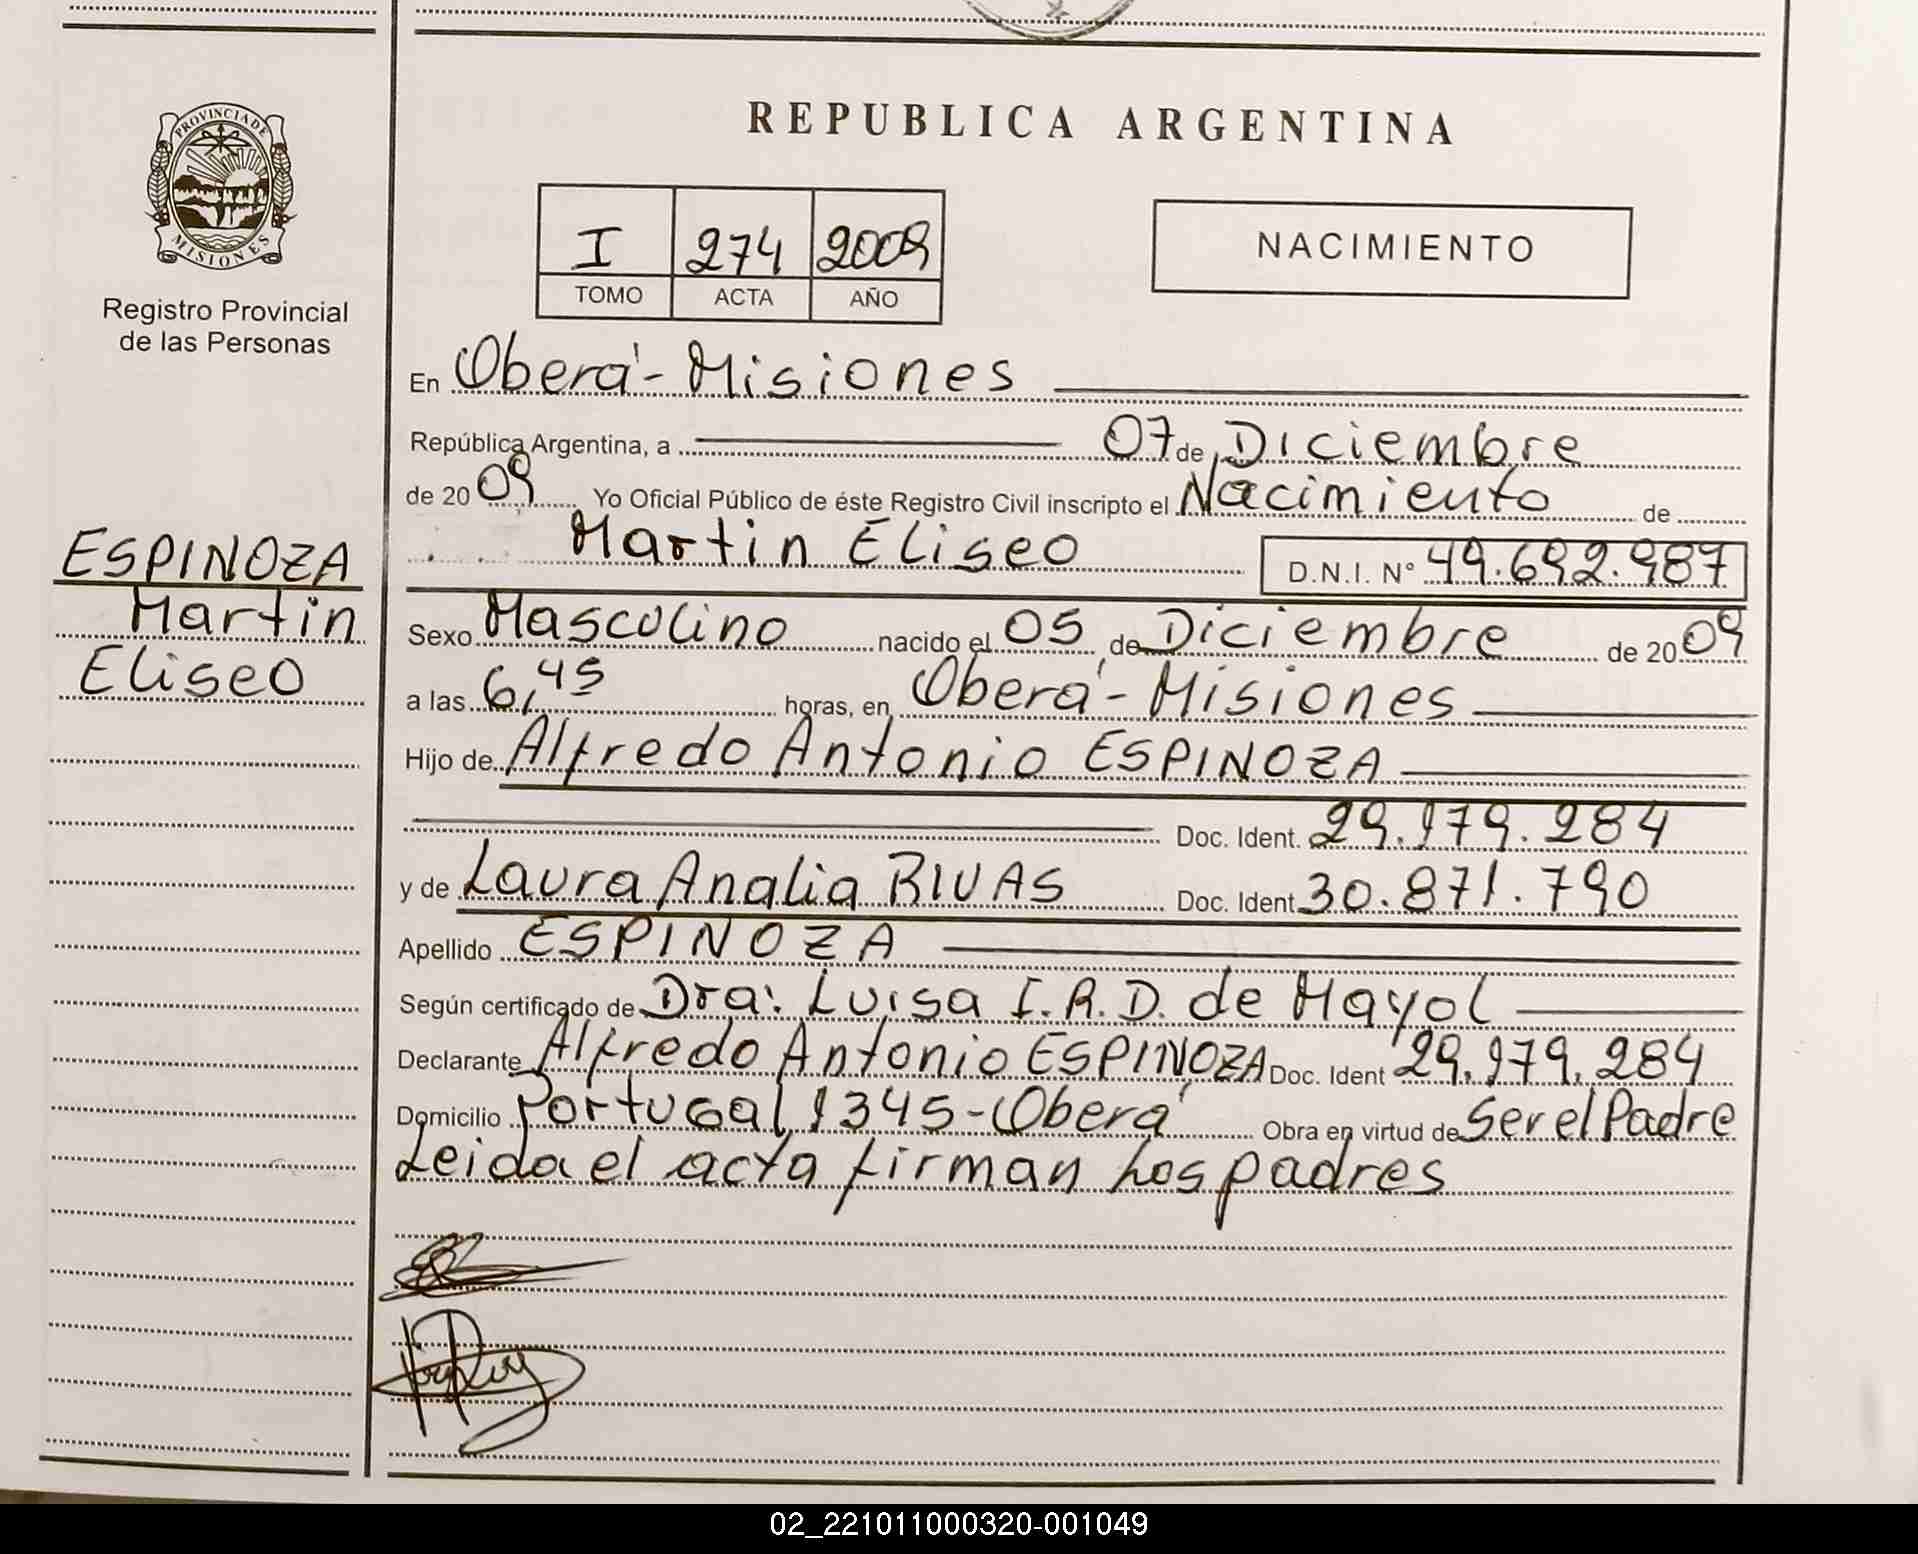 PROVINCIA DE
MISIONES
Registro Provincial
de las Personas
ESPINOZA
Martin
Eliseo
REPUBLICA ARGENTINA
I 274 2009
TOMO ACTA AÑO
NACIMIENTO
En Oberá - Misiones
República Argentina, a 07 de Diciembre
de 2009 Yo Oficial Público de éste Registro Civil inscripto el Nacimiento de
Martin Eliseo D.N.I. N° 49.692.987
Sexo Masculino nacido el 05 de Diciembre de 2009
a las 6,45 horas, en Oberá - Misiones
Hijo de Alfredo Antonio ESPINOZA
Doc. Ident. 29.179.284
y de Laura Analia RIVAS Doc. Ident 30.871.790
Apellido ESPINOZA
Según certificado de Dra: Luisa I.R.D. de Mayol
Declarante Alfredo Antonio ESPINOZA Doc. Ident 29.179.284
Domicilio Portugal 1345 - Oberá Obra en virtud de Ser el Padre
Leida el acta firman los padres
02_221011000320-001049